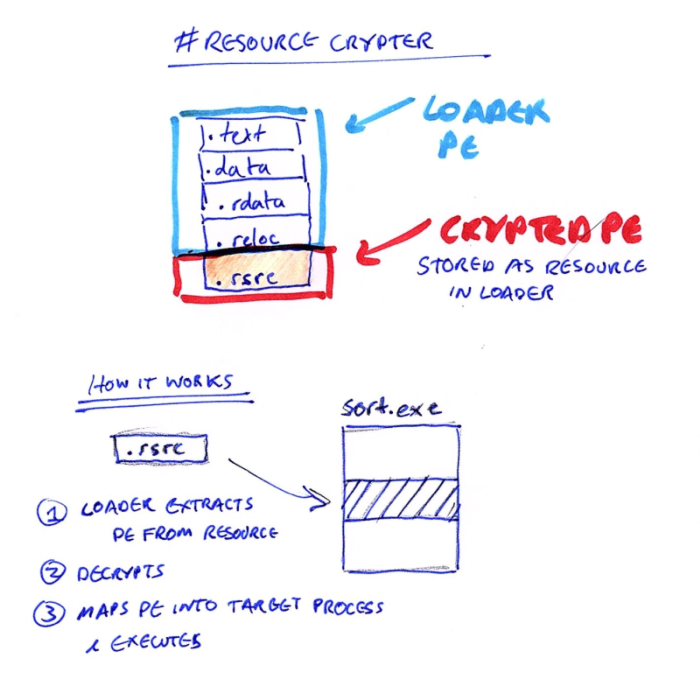 # RESOURCE CRYPTER
.text
LOADER
PE
.data
.rdata
.reloc
CRYPTED PE
STORED AS RESOURCE
IN LOADER
.rsrc
HOW IT WORKS
sort.exe
.rsrc
① LOADER EXTRACTS
PE FROM RESOURCE
② DECRYPTS
③ MAPS PE INTO TARGET PROCESS
& EXECUTES